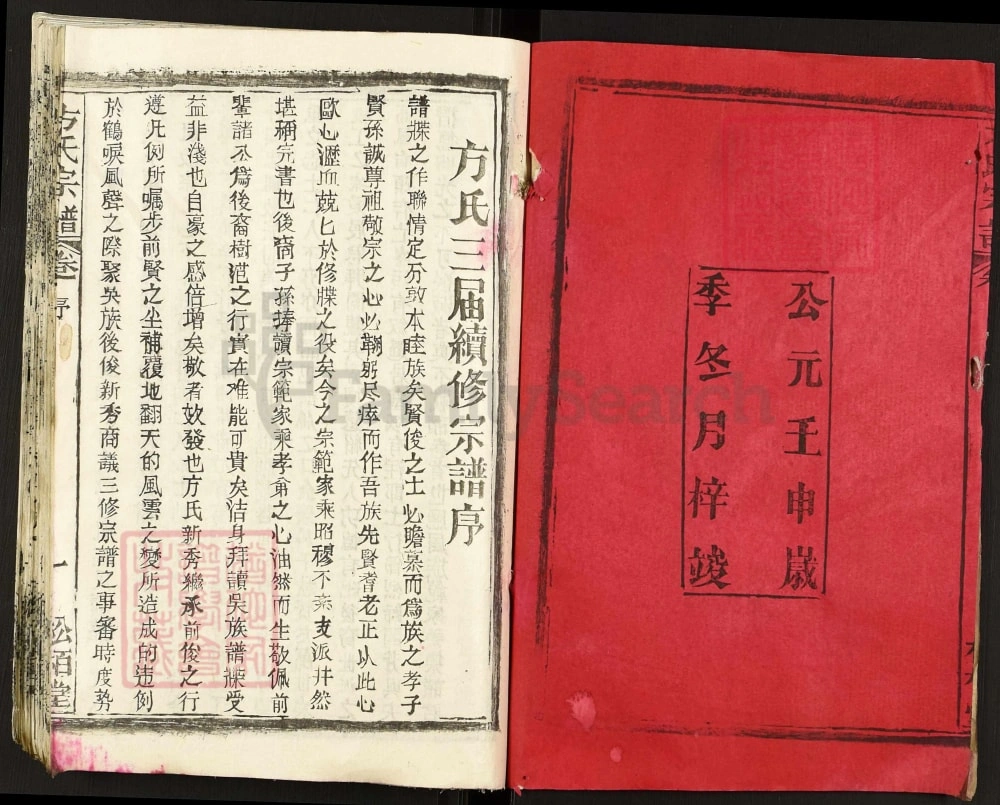 公元壬申歲
季冬月梓竣
方氏三届續修宗譜序
譜牒之作聯情定分敦本睦族矣賢俊之士必瞻慕而為族之孝子
賢孫誠尊祖敬宗之心必鞠躬尽瘁而作吾族先賢耆老正以此心
歐心瀝血兢匕於修牒之役矣今之宗範家乘昭穆不紊支派井然
堪稱完書也後裔子孫捧讀宗範家乘孝之心油然而生敬佩前
輩諸不為後裔樹范之行實在难能可貴矣洁身拜讀吳族譜牒受
益非淺也自豪之感倍增矣敬者效發也方氏新秀繼承前俊之行
遵凡例所嘱步前賢之坐補覆地翻天的風雲之變所造成的违例
於鶴唳風聲之際聚吳族後俊新秀商議三修宗譜之事審時度勢
方氏宗譜
卷一
序
一
松栢堂
FamilySearch